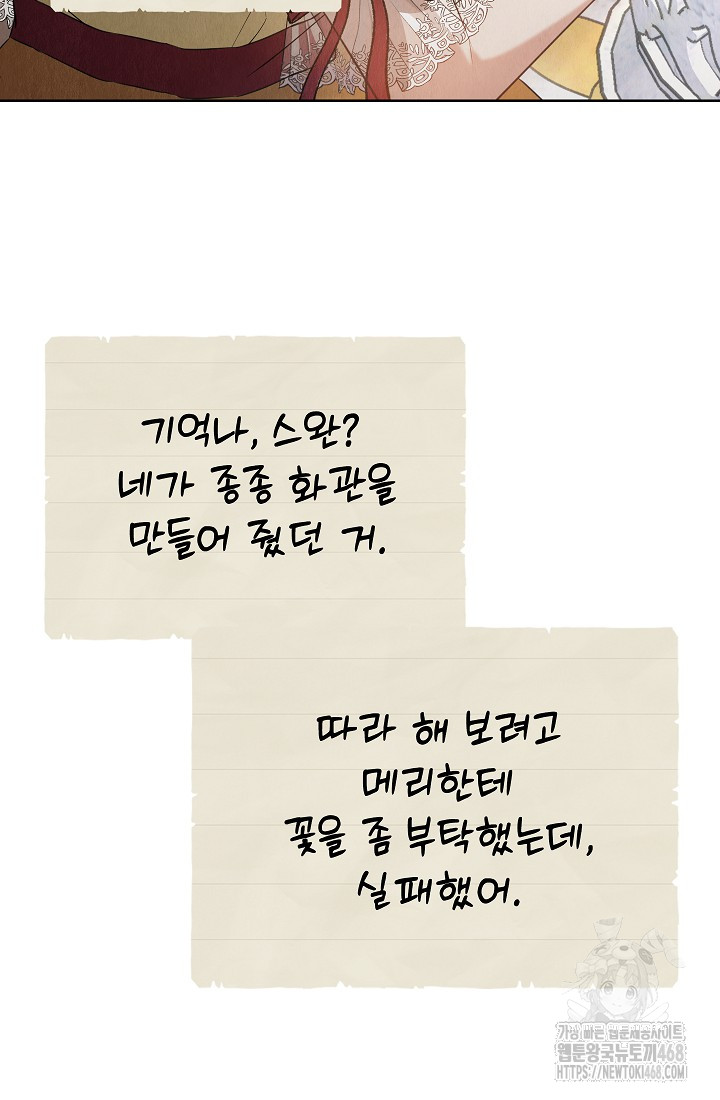 기억나, 스완?
네가 종종 화관을
만들어 줬던 거.
따라 해 보려고
메리한테
꽃을 좀 부탁했는데,
실패했어.
가장 빠른 웹툰제공사이트
웹툰왕국뉴토끼468
HTTPS://NEWTOKI468.COM